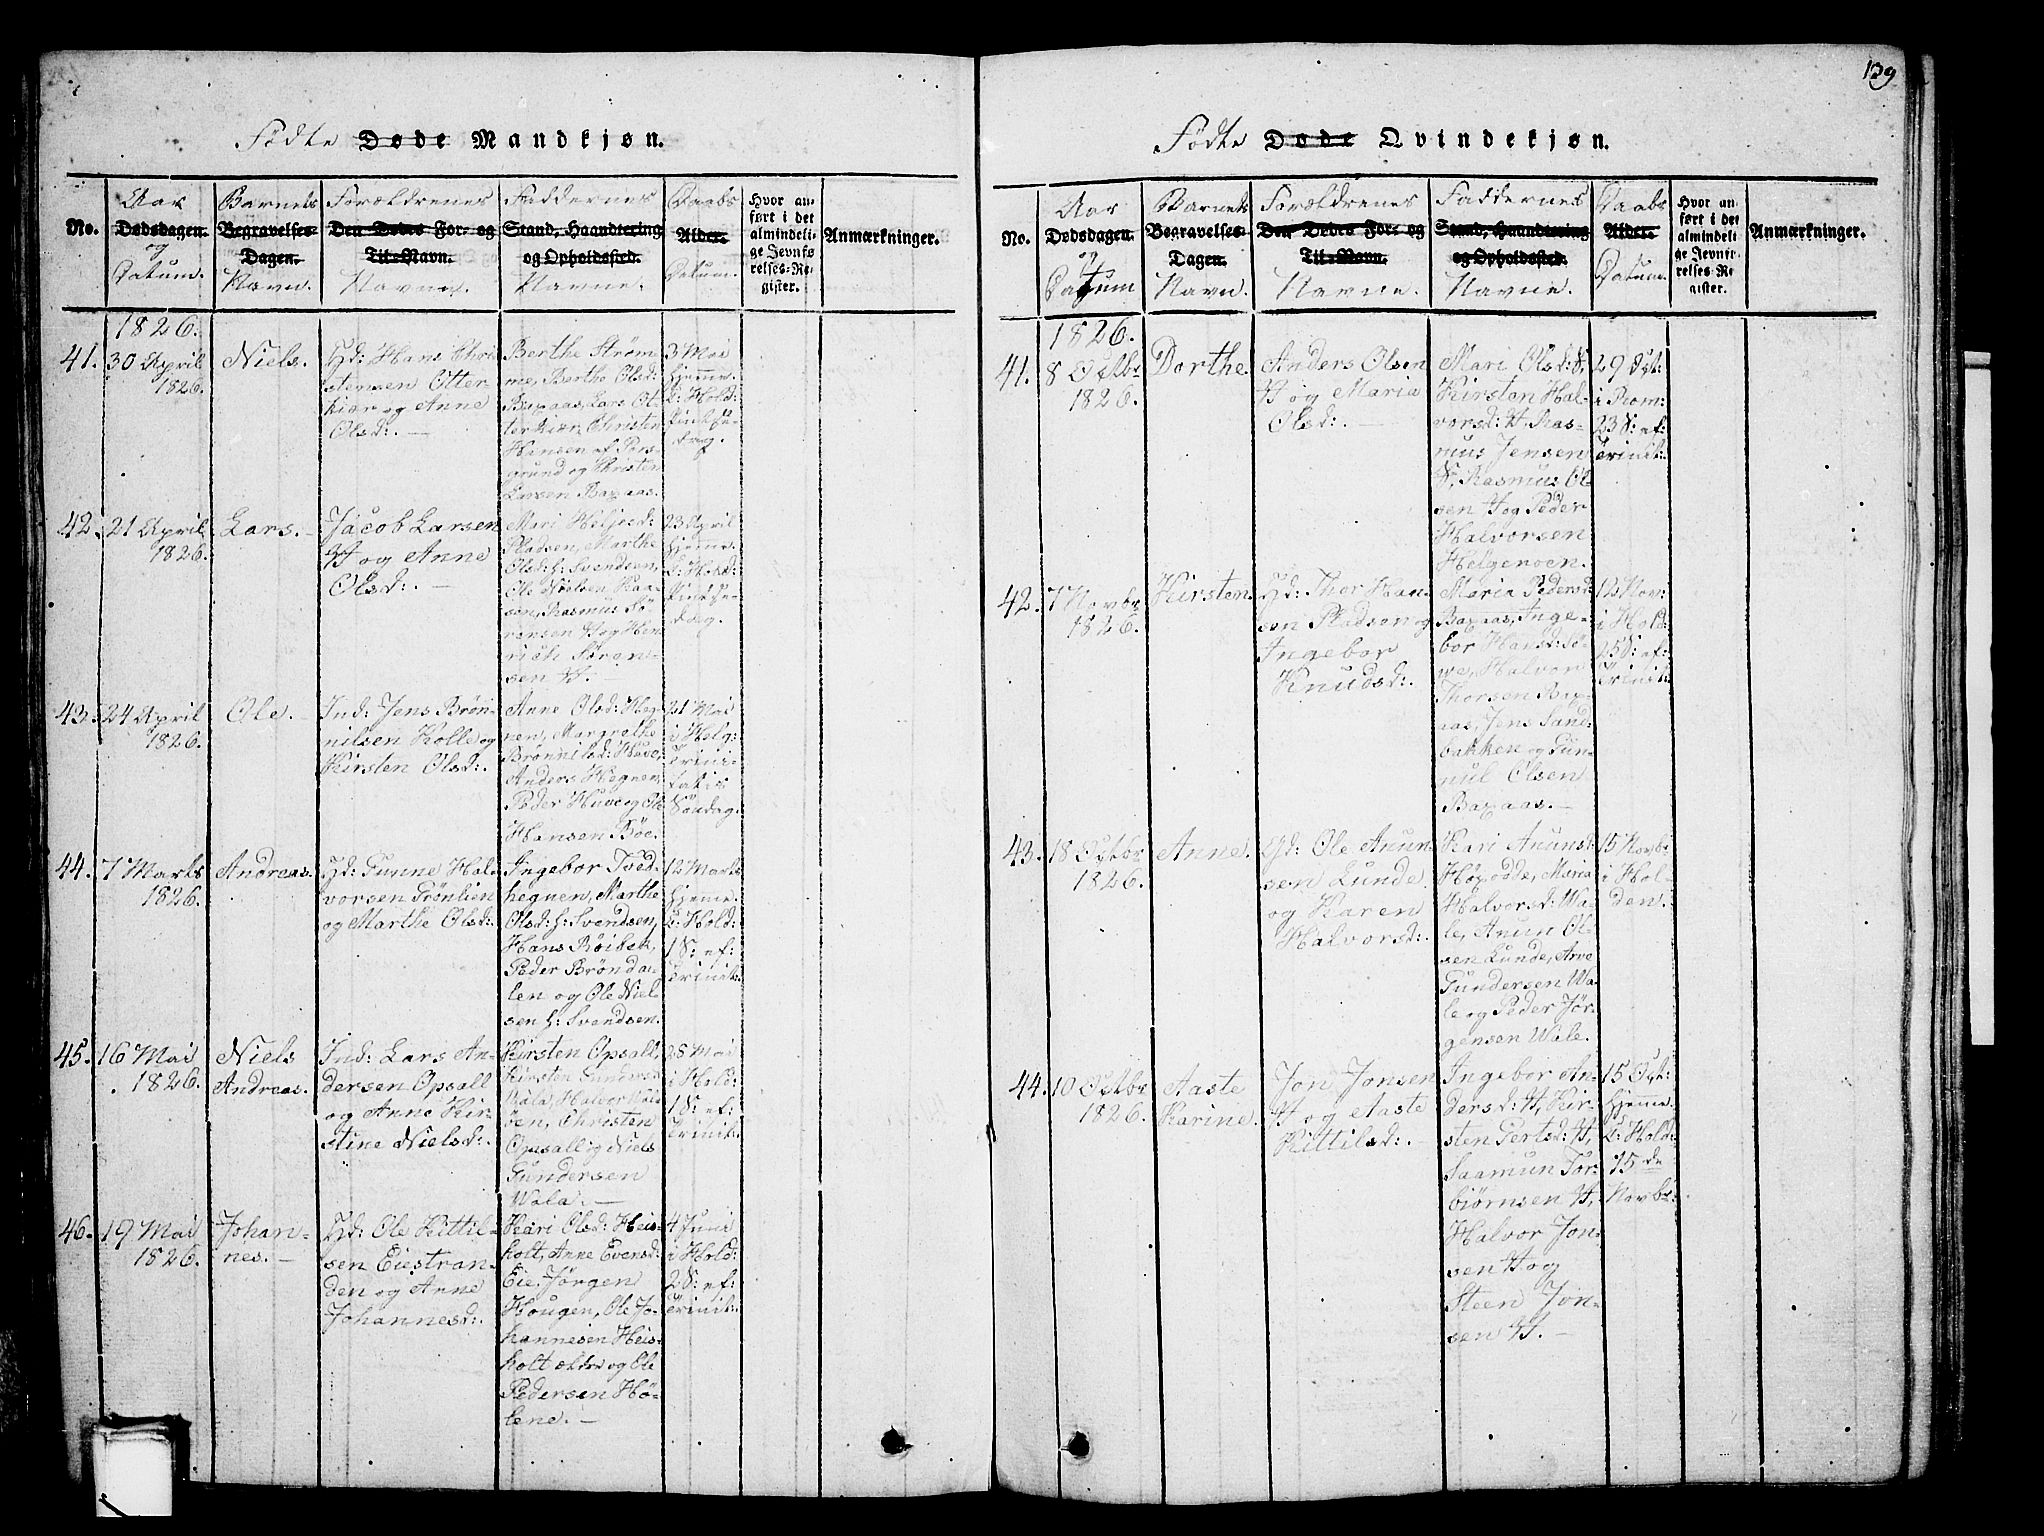 139
Fødte Døde Mandkjøn.
No.
Aar Dødsdagen. og Datum.
Barnets Begravelses-Dagen. Navn.
Forældrenes Den Dødes For- og Til-Navn. Navne.
Faddernes Stand, Haandtering og Opholdssted. Navne.
Daabs Alder. Datum.
Hvor anført i det almindelige Jevnførelses-Register.
Anmærkninger.
1826.
41.
30 April
1826.
Niels.
Gd: Hans Chri
stensen Otter
kiær og Anne
Olsd: —
Berthe Strøm
me, Berthe Olsd:
Baxaas, Lars Ot
terkiær, Christen
Hansen af Pors
grund og Christen
Larsen Baxaas.
3 Mai
hjemme.
i Hold:
Pintse-
dag.
42.
21 April
1826.
Lars. —
Jacob Larsen
H og Anne
Olsd: —
Mari Heljesd:
Pladsen, Marthe
Olsd: h: Svendsen,
Ole Nielsen Kaa-
sen, Rasmus Sö-
rensen H og Hen-
rich Sören-
sen H. —
23 April
hjemme.
i Hold:
Pintse-
dag.
43.
24 April
1826.
Ole. —
Ind: Jens Brön-
nilsen Kolle og
Kirsten Olsd:
Anne Olsd: Heg-
nen, Margrethe
Brönnilsd: Huve,
Anders Hegnen,
Peder Huve og Ole
Hansen Böe.
21 Mai
i Helg:
Trini-
tatis
Söndag.
44.
7 Marts
1826.
Andreas.
Gd: Gunne Hal
vorsen Grönlien
og Marthe Olsd:
Ingebor Tved
hegnen, Marthe
Olsd: h: Svendsen,
Hans Röibek,
Peder Brönda-
len og Ole Niel
sen h: Svendsen.
12 Marts
hjemme.
i Hold:
1 S: ef:
Trinit:
45.
16 Mai
1826.
Niels
Andreas.
Ind: Lars An-
dersen Opsall
og Anne Kir-
stine Nielsd:
Kirsten Opsall,
Kirsten Gundersd:
Wala, Halvor Wala-
öen, Christen
Opsall og Niels
Gundersen
Wala. —
28 Mai
i Hold:
1 S: ef:
Trinit:
46.
19 Mai
1826.
Johan-
nes. —
Gd: Ole Kittil-
sen Eiestran-
den og Anne
Johannesd:
Kari Olsd: Heis-
holt, Anne Evensd:
Eie, Jörgen
Hougen, Ole Jo-
hannesen Heis-
holt ældre og Ole
Pedersen Hö-
lene. —
4 Juni
i Hold:
2 S: ef:
Trinit:
Fødte Døde Qvindekjøn.
No.
Aar Dødsdagen. og Datum
Barnets Begravelses-Dagen. Navn.
Forældrenes Den Dødes For- og Til-Navn. Navne.
Faddernes Stand, Haandtering og Opholdssted. Navne.
Daabs Alder. Datum.
Hvor anført i det almindelige Jevnførelses-Register.
Anmærkninger.
1826.
41.
8 Octbr
1826.
Dorthe.
Anders Olsen
H og Maria
Olsd: —
Mari Olsd: H,
Kirsten Hal-
vorsd: H, Ras-
mus Jensen
H, Rasmus Ol
sen H og Peder
Halvorsen
Helgenoen.
29 Oct:
i Rom:
23 S: ef:
Trinit:
42.
7 Novbr
1826.
Kirsten.
Gd: Thor Haan-
sen Pladsen og
Ingebor
Knudsd:
Maria Pedersd:
Baxaas, Inge-
bor Hansd: Sö-
we, Halvor
Thorsen Bax-
aas, Jens Sand-
bakken og Gun-
nul Olsen
Baxaas. —
12 Nov:
i Hold:
25 S: ef:
Trinit:
43.
18 Octbr
1826.
Anne.
Gd: Ole Anun
sen Lunde
og Karen
Halvorsd:
Kari Anunsd:
Hoxodde, Maria
Halvorsd: Wa-
le, Anun Ol-
sen Lunde, Arve
Gundersen Wa-
le og Peder Jör-
gensen Wale.
15 Novb:
i Hol-
den.
44.
10 Octbr
1826.
Aaste
Karine.
Jon Jonsen
H og Aaste
Kittilsd: —
Ingebor An-
dersd: H, Kir-
sten Gertsd: H,
Saamun Tor-
biørnsen H,
Halvor Jon-
sen H og
Steen Jon-
sen H. —
15 Oct:
hjemme.
i Hold:
15 de
Novbr.